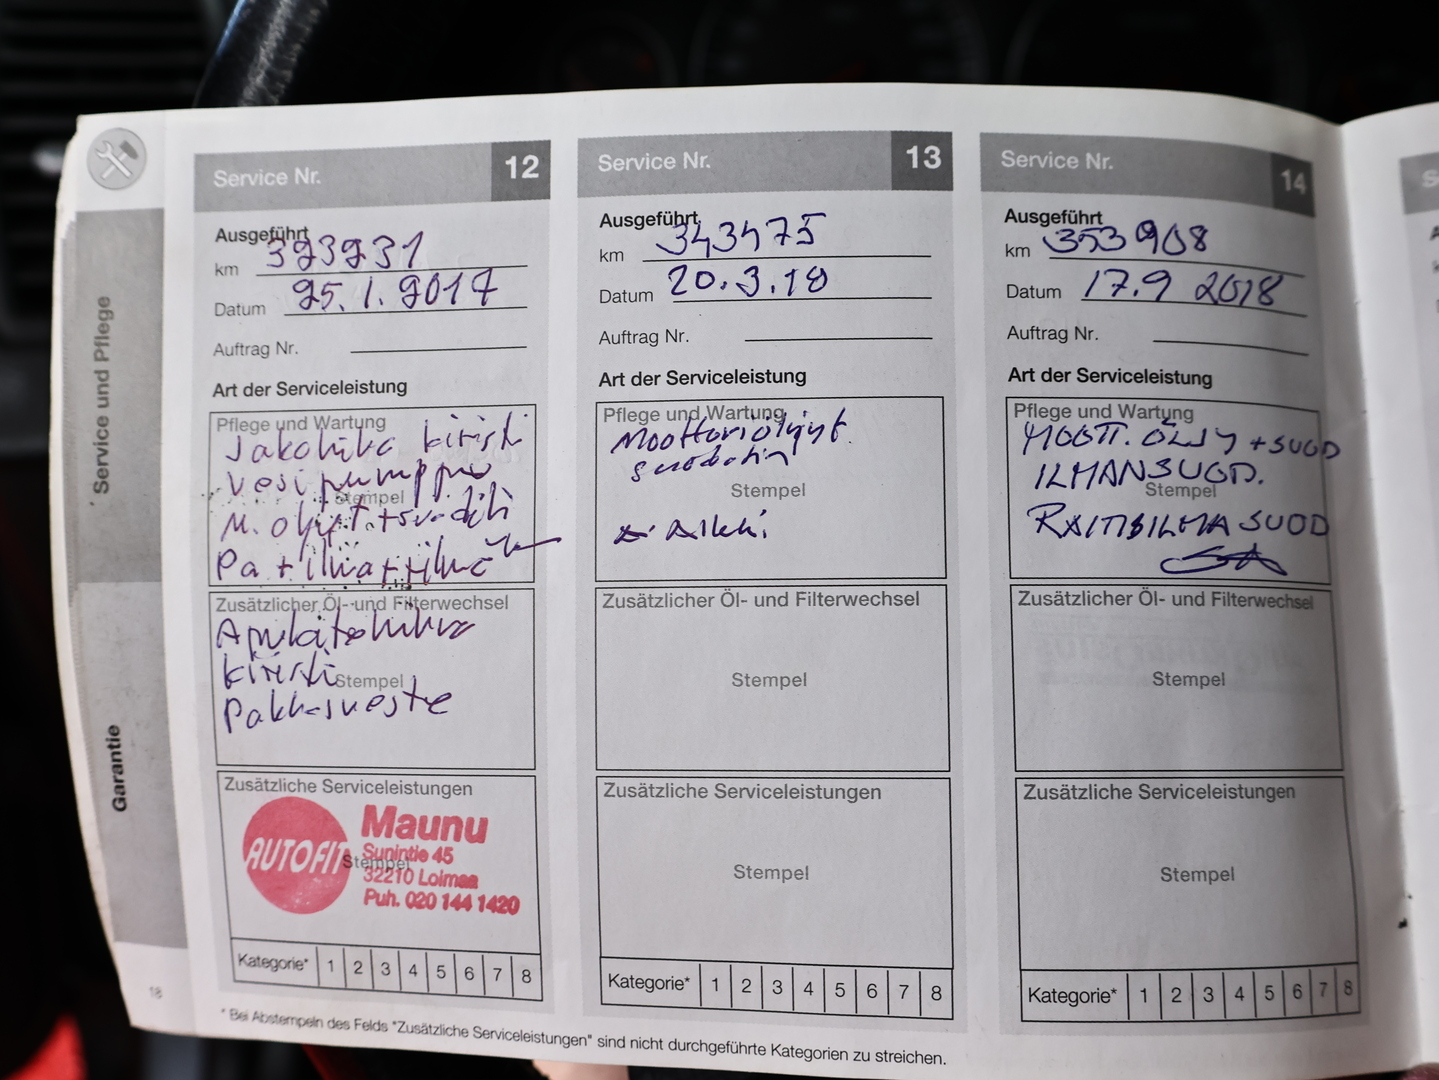 Service Nr. 12
Ausgeführt
km 323231
Datum 25.1.2017
Auftrag Nr.
Art der Serviceleistung
Pflege und Wartung
Jakohihna kiristi
vesipumppu
Stempel
M. öljyt + suodatin
Zusätzlicher Öl- und Filterwechsel
kiristi
Stempel
Pakk.neste
Zusätzliche Serviceleistungen
AUTOFIT
Maunu
Supintie 45
Stempel
32210 Loimaa
Puh. 020 144 1420
Kategorie* 1 2 3 4 5 6 7 8
Service Nr. 13
Ausgeführt
km 343475
Datum 20.3.18
Auftrag Nr.
Art der Serviceleistung
Pflege und Wartung
Moottoriöljyt
suodatin
Stempel
Zusätzlicher Öl- und Filterwechsel
Stempel
Zusätzliche Serviceleistungen
Stempel
Kategorie* 1 2 3 4 5 6 7 8
Service Nr. 14
Ausgeführt
km 353908
Datum 17.9 2018
Auftrag Nr.
Art der Serviceleistung
Pflege und Wartung
MOOTT. ÖLJY + SUOD
ILMANSUOD.
Stempel
RAITISILMA SUOD
Zusätzlicher Öl- und Filterwechsel
Stempel
Zusätzliche Serviceleistungen
Stempel
Kategorie* 1 2 3 4 5 6 7 8
* Bei Abstempeln des Felds "Zusätzliche Serviceleistungen" sind nicht durchgeführte Kategorien zu streichen.
Service und Pflege
Garantie
18